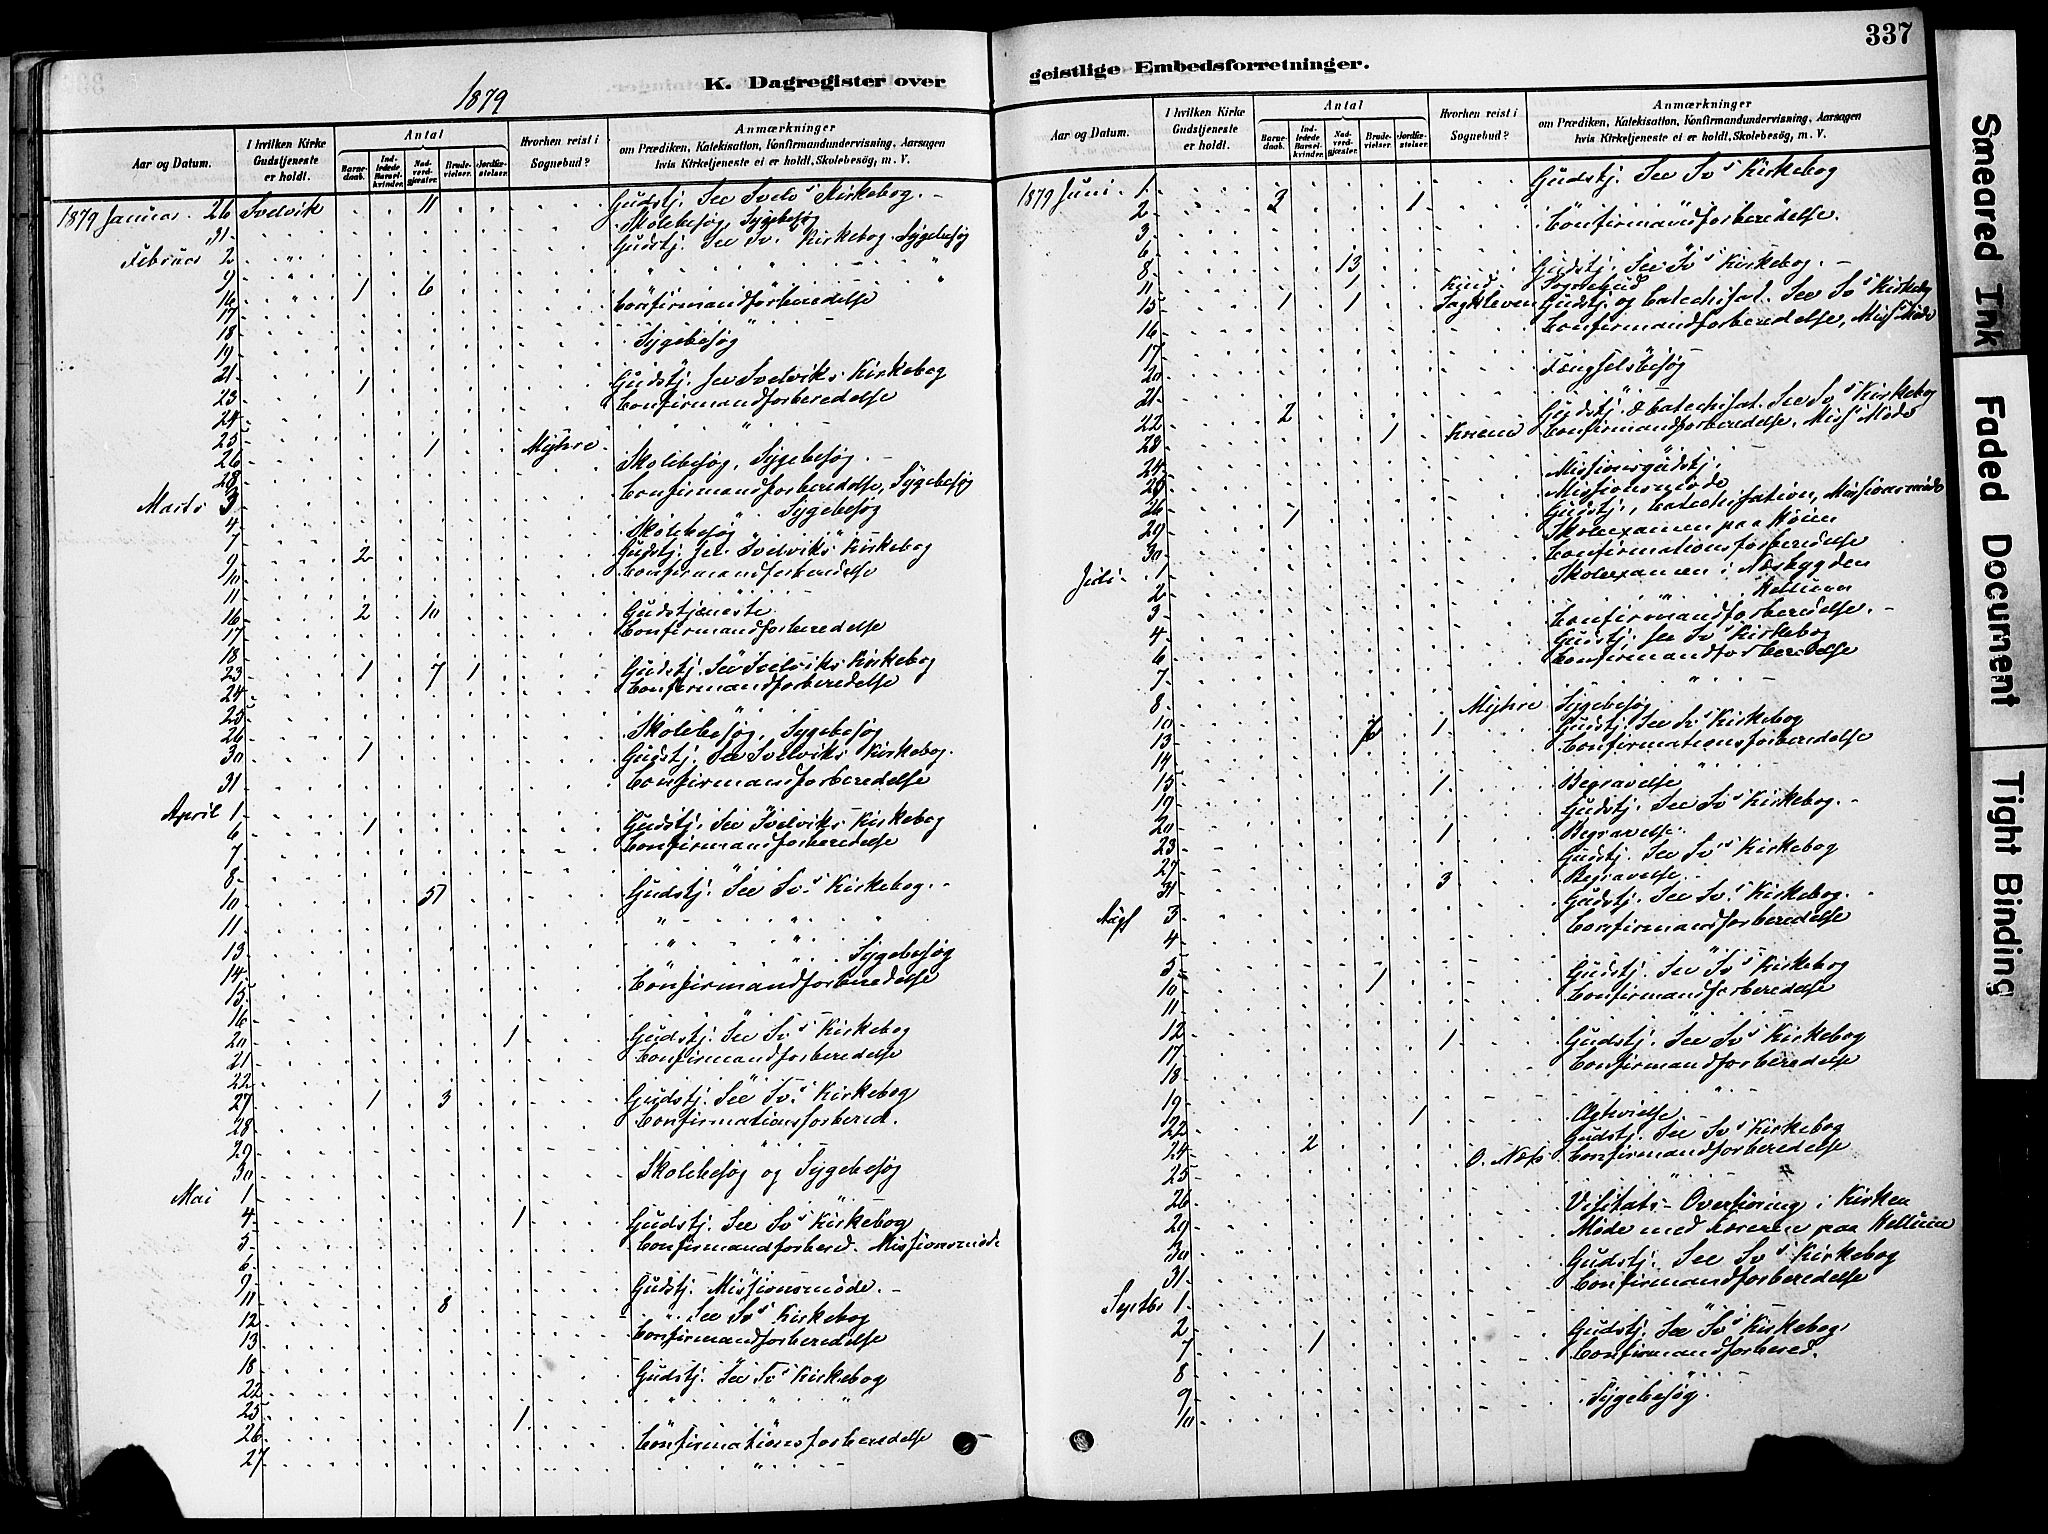 337
K. Dagregister over
geistlige Embedsforretninger.
1879
Aar og Datum.
I hvilken Kirke Gudstjeneste er holdt.
Antal
Barnedaab.
Indledede Barselkvinder.
Nadverdgjæster.
Brudevielser.
Jordfæstelser.
Hvorhen reist i Sognebud?
Anmærkninger
om Prædiken, Katekisation, Konfirmandundervisning, Aarsagen
hvis Kirketjeneste ei er holdt, Skolebesög, m. V.
1879 Januar 26 Svelvik 11 Gudstj. See Svelvs Kirkebog.
31 Skolebesøg, Sygebesøg
Februar 2 Gudstj. See Sv. Kirkebog. Sygebesøg
9 1 6 " " "
16
17 Confirmandforberedelse
18 "
19 Sygebesøg
21
23 1 Gudstj. See Svelviks Kirkebog
24 Confirmandforberedelse
25 "
26 1 Myhre
28 Skolebesøg, Sygebesøg
Marts 3 Confirmandforberedelse, Sygebesøg
4 " Sygebesøg
7 Skolebesøg
9 2 Gudstj. See Svelviks Kirkebog
10 Confirmandforberedelse
11 "
16 2 10 Gudstjeneste
17 Confirmandforberedelse
18 "
23 1 7 1 Gudstj. See Svelviks Kirkebog
24 Confirmandforberedelse
25 "
26 Skolebesøg, Sygebesøg
30 1 Gudstj. See Svelviks Kirkebog.
31 Confirmandforberedelse
April 1 "
6 1 Gudstj. See Svelviks Kirkebog
7 Confirmandforberedelse
8 "
10 51 Gudstj. See Sv.s Kirkebog
11 " " "
13 " " " Sygebesøg
14
15 Confirmandforberedelse
16
20 1 Gudstj. See Sv.s Kirkebog
21 Confirmandforberedelse
22 "
27 1 3 Gudstj. See Sv.s Kirkebog
28 Confirmationsforbered.
29 "
30 Skolebesøg og Sygebesøg
Mai 1
4 1 Gudstj. See Sv.s Kirkebog
5 Confirmandforbered. Missionsmøde
6 "
9 Gudstj. Missionsmøde.
11 8 " See Sv.s Kirkebog
12 Confirmandforberedelse
13 "
18 Gudstj. See Sv.s Kirkebog
22 " " "
25 1
26 Confirmationsforberedelse
27 "
Aar og Datum.
I hvilken Kirke Gudstjeneste er holdt.
Antal
Barnedaab.
Indledede Barselkvinder.
Nadverdgjæster.
Brudevielser.
Jordfæstelser.
Hvorhen reist i Sognebud?
Anmærkninger
om Prædiken, Katekisation, Konfirmandundervisning, Aarsagen
hvis Kirketjeneste ei er holdt, Skolebesög, m. V.
1879 Juni 1 3 1 Gudstj. See Sv.s Kirkebog
2 Confirmandforberedelse.
3 "
6
8 13 Gudstj. See Sv.s Kirkebog.
11 1 Sognebud
15 1 1 Gudstj. og Catechisat. See Sv.s Kirkebog
16 Confirmandforberedelse, Miss. Møde
17 "
20 Fængselsbesøg
21 "
22 2 Gudstj. & Catechisat. See Sv.s Kirkebog
23 1 Confirmandforberedelse, Miss. Møde
24 "
25 Missionsgudstj.
26 Missionsmøde
29 1 Gudstj., Catechisation, Missionsmøde
30 Skoleexamen paa Høien
Juli 1 Confirmationsforberedelse
2 Skoleexamen i Næsbygden
3 " "
4 Confirmandforberedelse.
6 Gudstj. See Sv.s Kirkebog
7 Confirmandforberedelse
8 "
10 Myhre Sygebesøg
13 1 Gudstj. See Sv.s Kirkebog
14 Confirmationsforberedelse
15 "
19 1 Begravelse
20 Gudstj. See Sv.s Kirkebog.
23 1 Begravelse
27 Gudstj. See Sv.s Kirkebog
31 3 Begravelse
Augt 3 Gudstj. See Sv.s Kirkebog.
4 Confirmandforberedelse
5 "
10 1 Gudstj. See Sv.s Kirkebog
11 Confirmandforberedelse
12 "
17 1 Gudstj. See Sv.s Kirkebog
18 Confirmandforberedelse
19 "
22 1
24 2 Gudstj. See Sv.s Kirkebog
25 O. Næss Confirmandforberedelse
26 "
29 Visitats i Kirken
30 Møde med Læreren paa
31 Gudstj. See Sv.s Kirkebog
Septbr 1 Confirmandforberedelse
2 "
7 1 Gudstj. See Sv.s Kirkebog
8 Confirmandforbered.
9 "
10 Sygebesøg.
Smeared Ink
Faded Document
Tight Binding